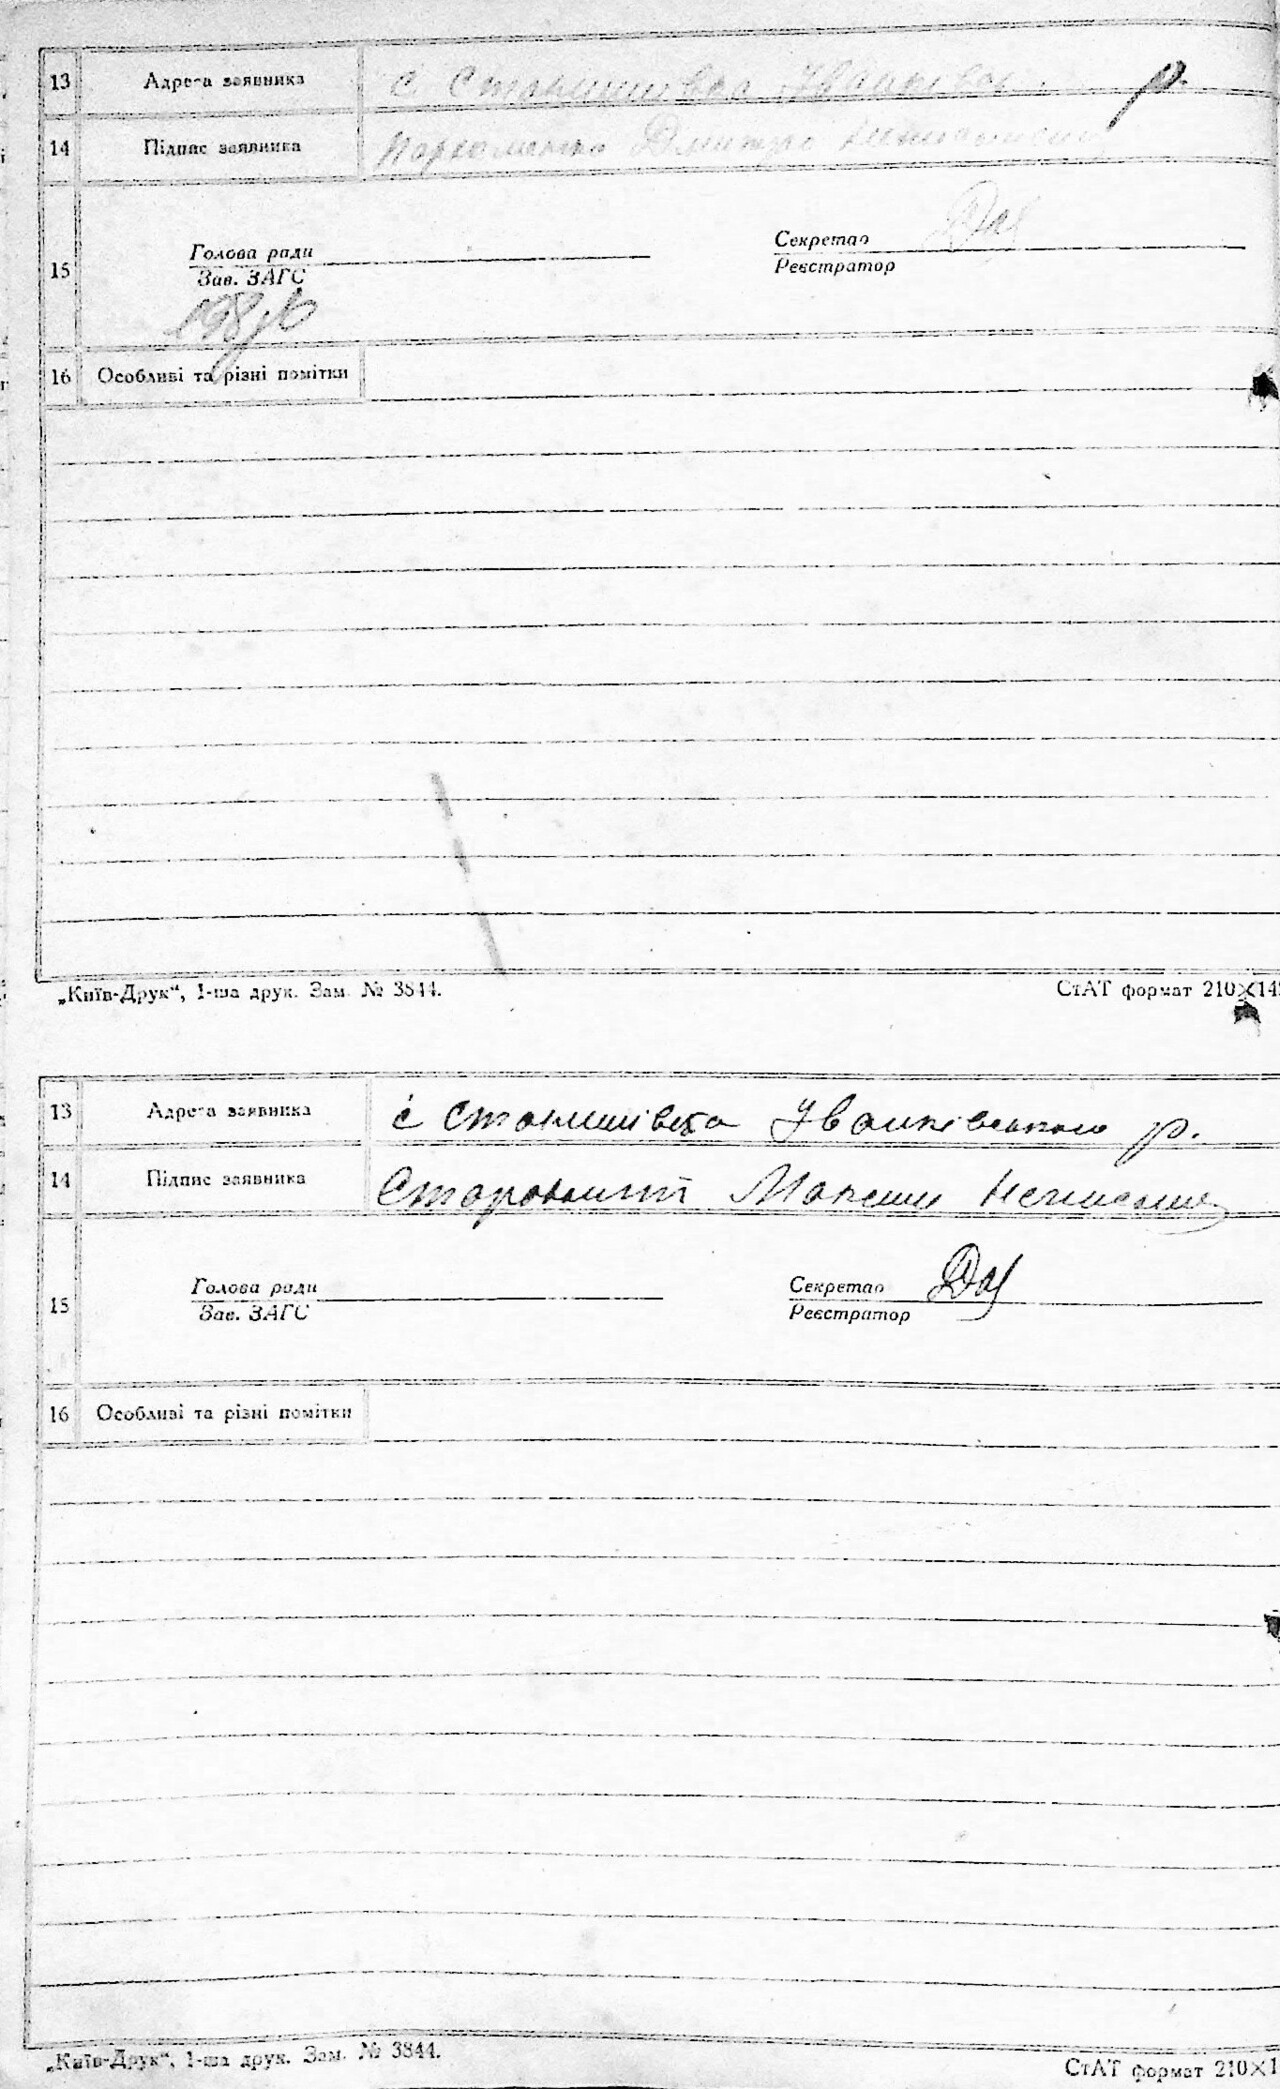 13 Адреса заявника с Станишівка Іванківсь р.
14 Підпис заявника Пархоменко Дмитро неписьмен
15 Голова ради Секретар
Зав. ЗАГС Реєстратор
16 Особливі та різні помітки
„Київ-Друк“, 1-ша друк. Зам. № 3844. СтАТ формат 210×14
13 Адреса заявника с Станишівка Іванківського р.
14 Підпис заявника Максим Неписьмен
15 Голова ради Секретар
Зав. ЗАГС Реєстратор
16 Особливі та різні помітки
„Київ-Друк“, 1-ша друк. Зам. № 3844. СтАТ формат 210×1